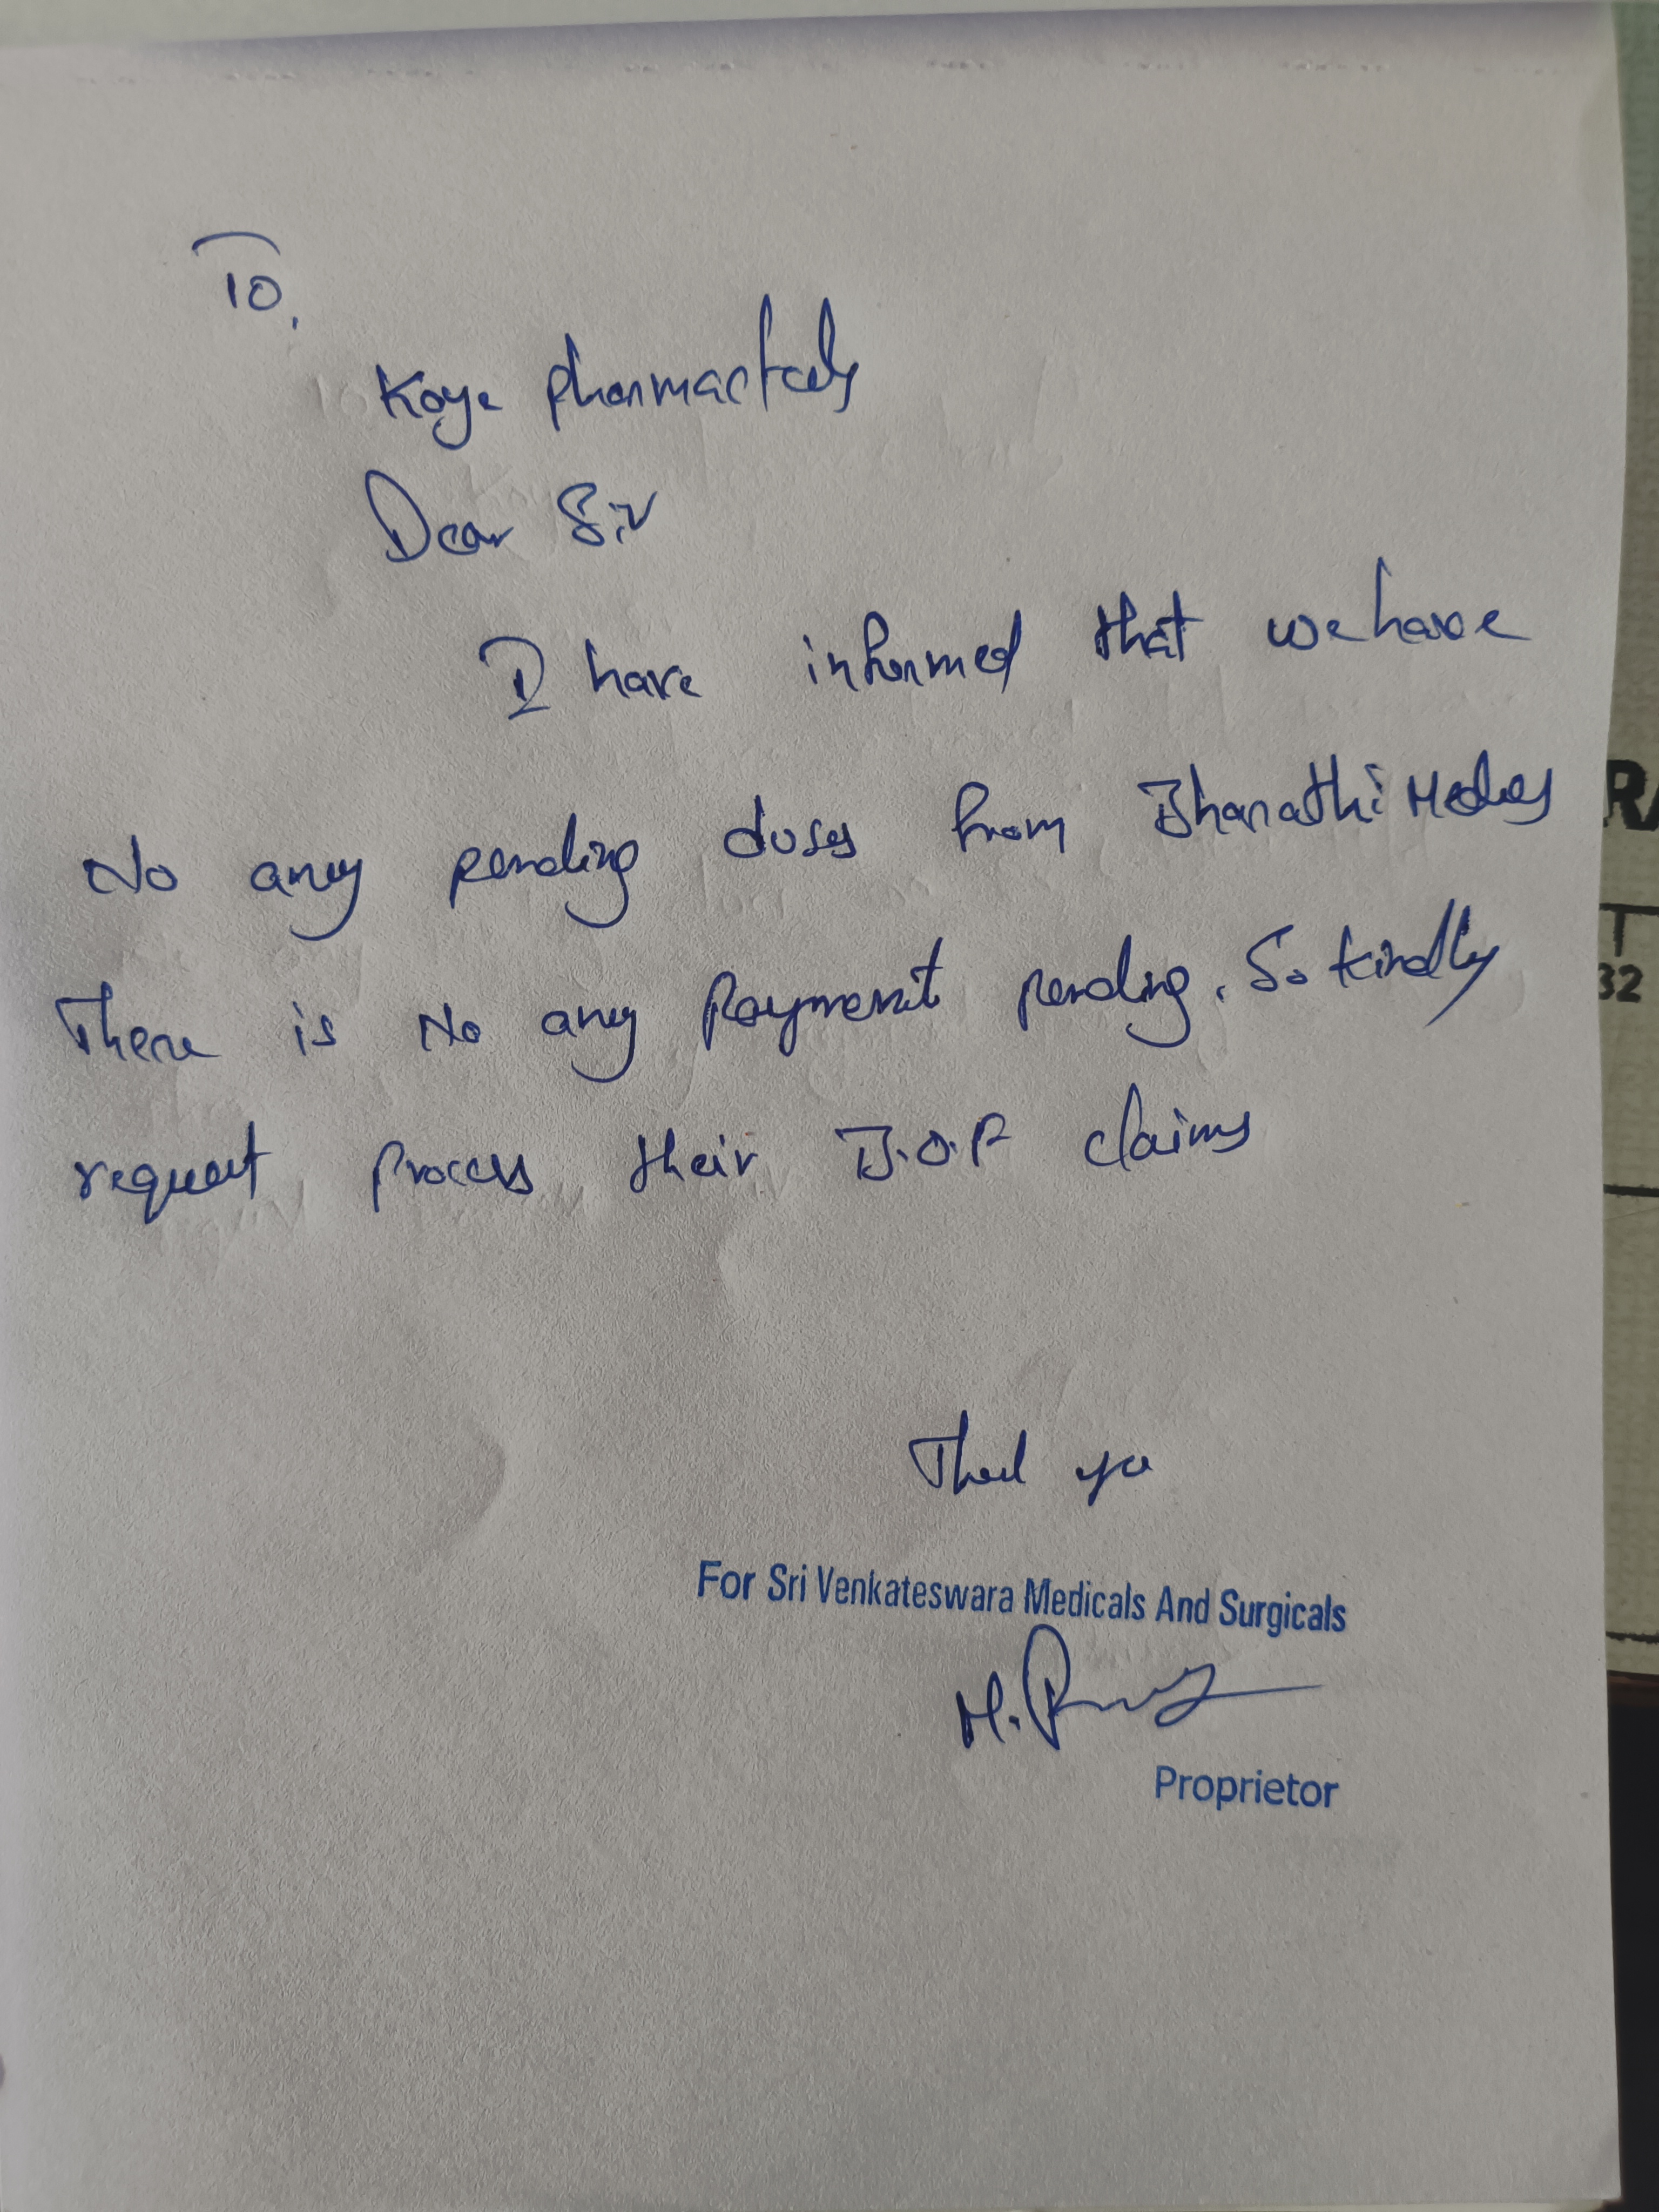 To,
Koye pharmacticals
Dear Sir
I have informed that we have
No any pending dues from Bharathi Medicals
There is No any Payment pending. So kindly
request process their B.O.P claims
Thank you
For Sri Venkateswara Medicals And Surgicals
Proprietor
32